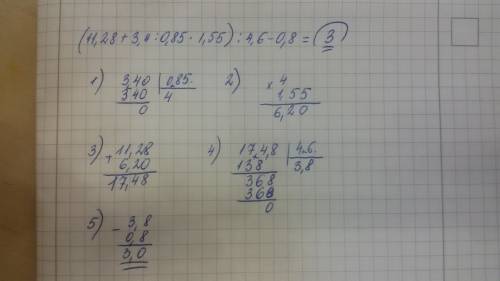 (11,28+3,4:0,85·1,55):4,6-0,8=3
1) 3,40 | 0,85 2) × 4
340 | 4 1,55
0 6,20
3) + 11,28 4) 17,4,8 | 4,6
6,20 138 | 3,8
17,48 368
368
0
5) - 3,8
0,8
3,0